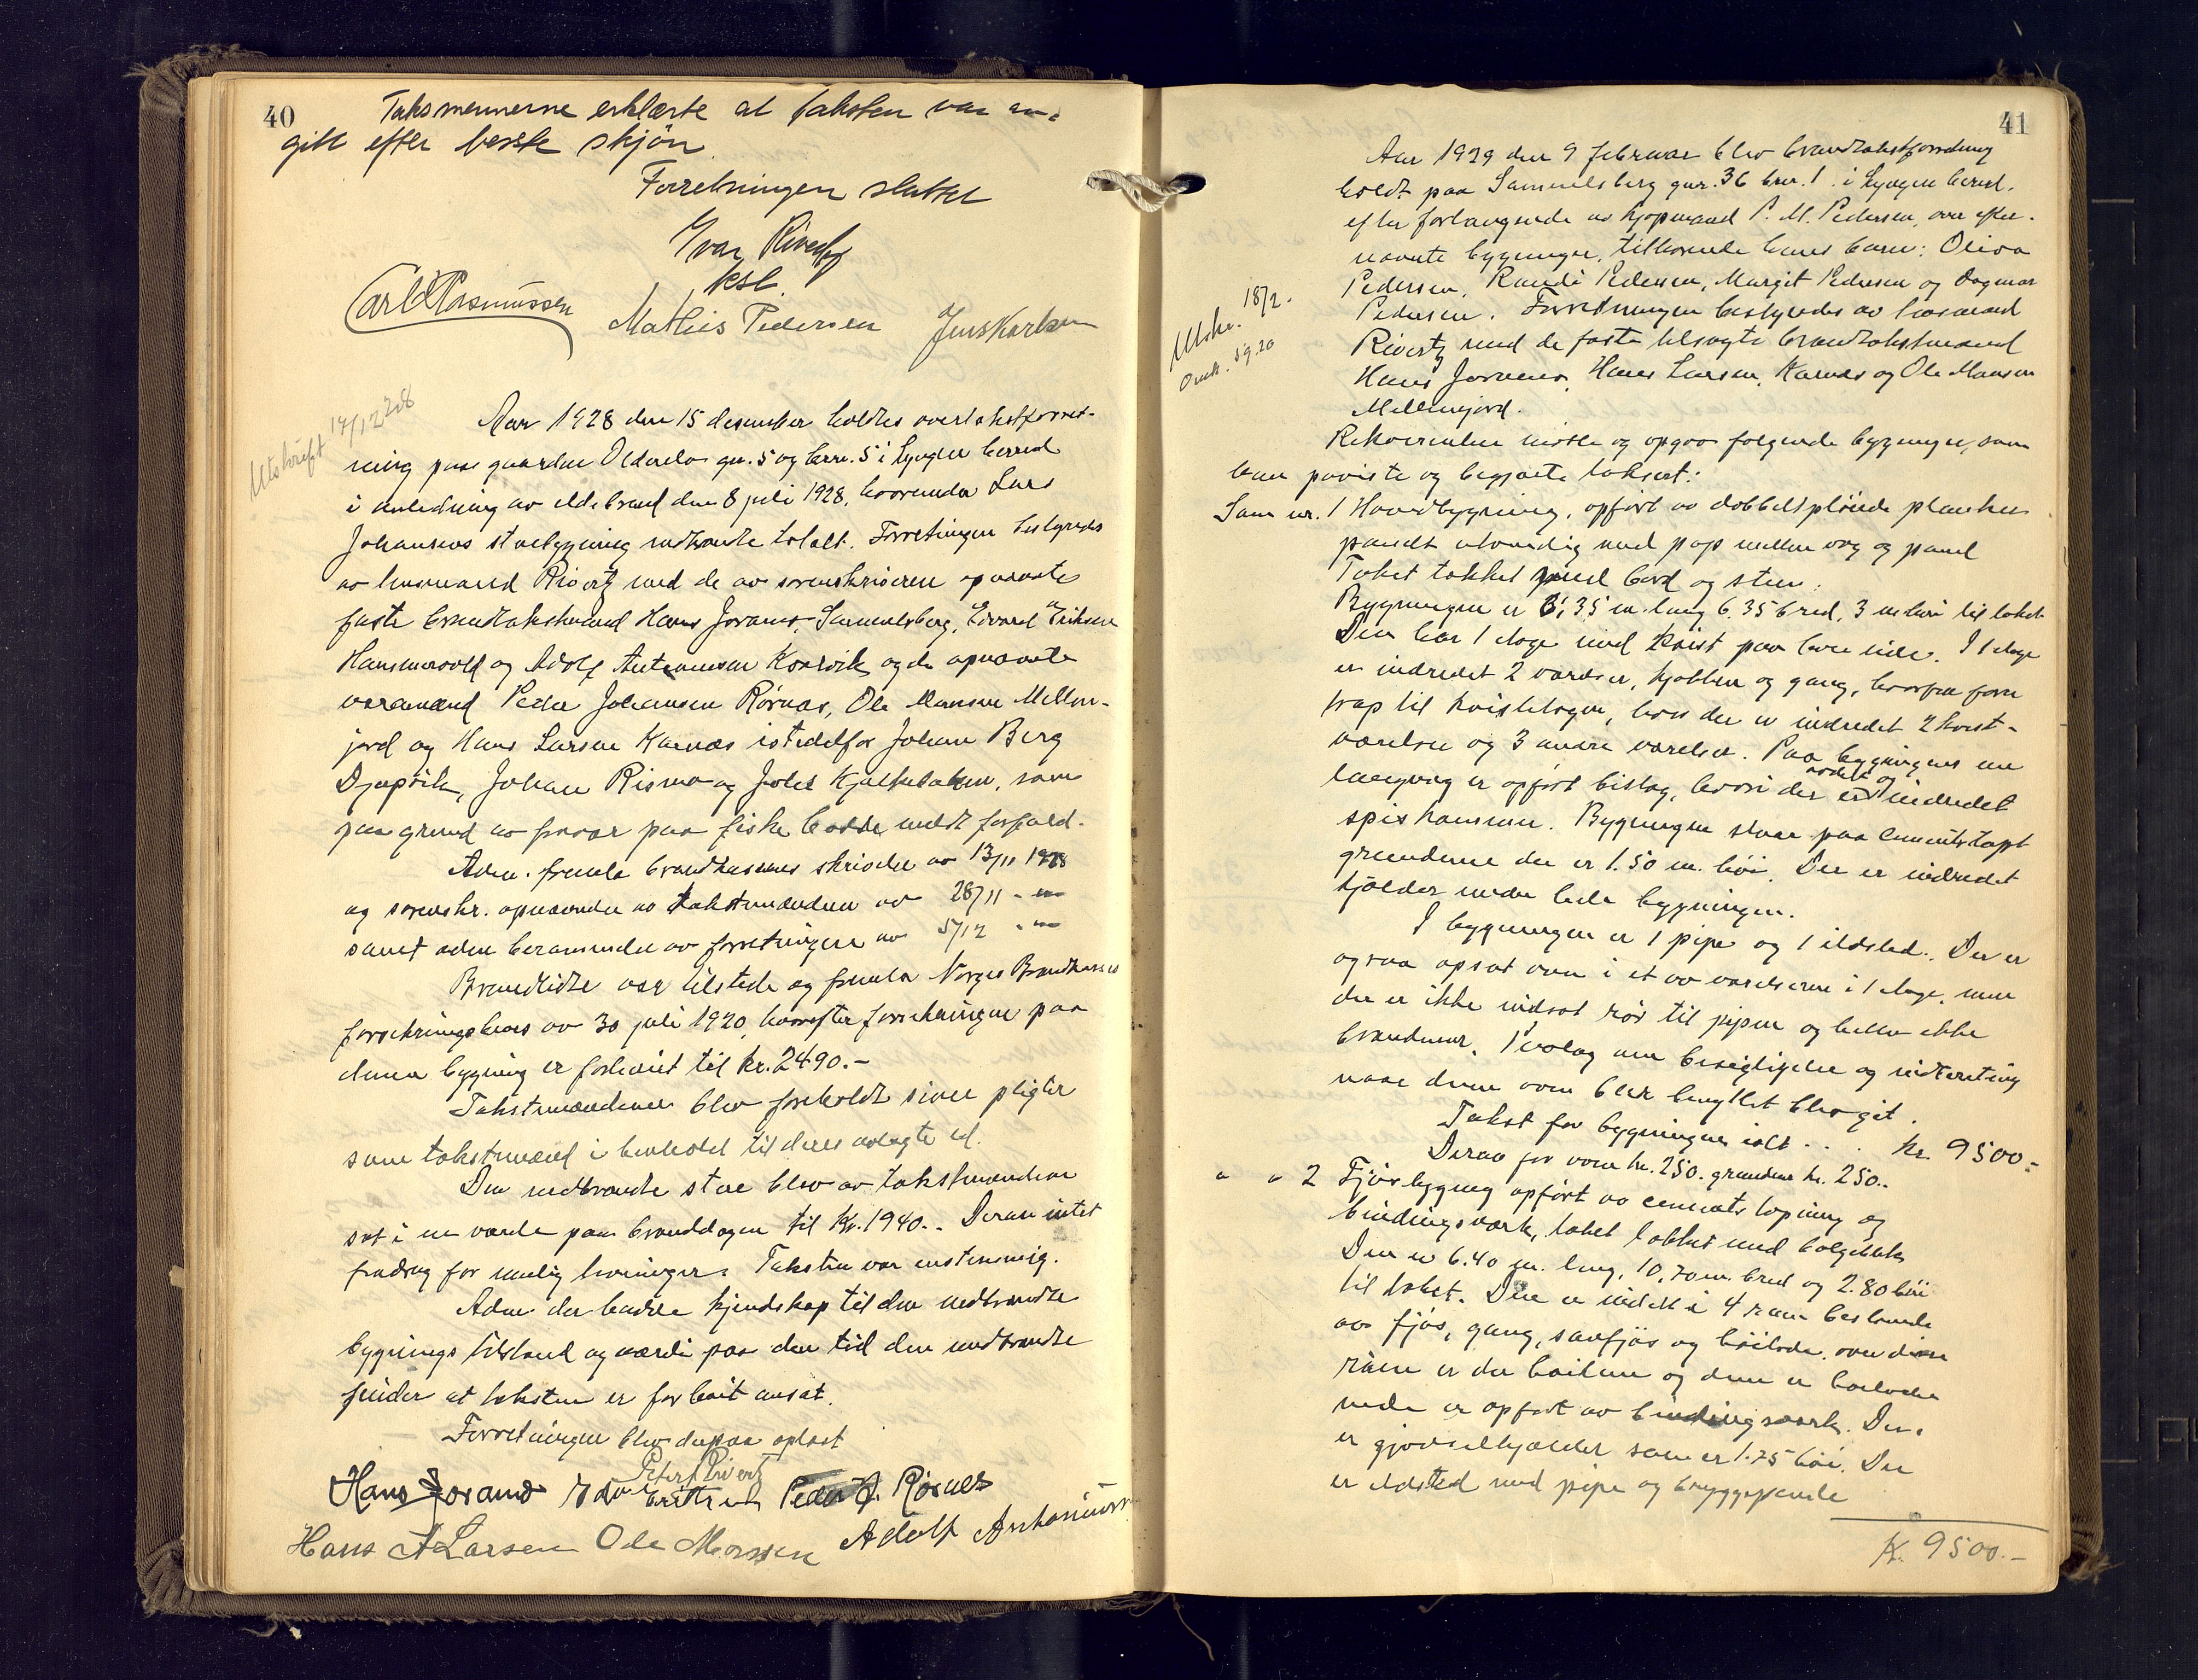 40
Taksmennerne erklærte at taksten var an-
gitt efter beste skjøn
Forretningen sluttet
Ivar Rivertz
ksl.
Carl Rasmussen Mathis Pedersen Jens Karlsen
Utskrift 17/12 28
Aar 1928 den 15 desember holdtes overtakstforret-
ning paa gaarden Olderelv gn. 5 og brn. 5 i Lyngen herred
i anledning av ildebrand den 8 juli 1928, hvorunder Lars
Johansens stuebygning nedbrændte totalt. Forretningen bestyredes
av lensmand Rivertz med de av sorenskriveren opnævnte
faste brandtakstmænd Hans Joramo, Samuelsberg, Edvard Eriksen
og Adolf Antonsen Kaarvik og de opnævnte
varamænd Peder Johansen Rørnæs, Ole Mansen Mellem-
jord og Hans Larsen Karnæs istedetfor Johan Berg
Djupvik, Johan Rismo og Johs Kjelkebakken, som
paa grund av fravær paa fiske hadde meldt forfald.
Adm. fremla brandkassens skrivelse av 13/11 1928
og sorenskr. opnævnelse av takstmændene av 28/11 - "
samt adm. berammelse av forretningen av 5/12 - "
Brandlidte var tilstede og fremla Norges Brandkasses
forsikringsbevis av 30 juli 1920, hvorefter forsikringen paa
denne bygning er forhøiet til kr. 2490.-
Takstmændene blev foreholdt sine pligter
som takstmænd i henhold til deres avlagte ed.
Den nedbrændte stue blev av takstmændene
sat i en værdi paa branddagen til Kr. 1940.- Derav intet
fradrag for mulig levninger. Taksten var enstemmig.
Adm. der hadde kjendskap til den nedbrændte
bygnings tilstand og værdi paa den tid den nedbrændte
finder at taksten er for høit ansat.
Forretningen blev derpaa oplæst
Peter Rivertz
Hans Joramo Edvard Eriksen Peder J. Rørnes
Hans A Larsen Ole Monssen Adolf Anthoniussen
41
Aar 1929 den 9 februar blev brandtakstforretning
holdt paa Samuelsberg gnr. 36 bnr. 1 i Lyngen herred.
efter forlangende av kjøpmand P. M. Pedersen over efter-
nævnte bygninger, tilhørende hans barn: Oliva
Pedersen, Randi Pedersen, Margit Pedersen og Dagmar
Pedersen. Forretningen bestyredes av lensmand
Rivertz med de faste tilsagte brandtakstmænd
Hans Joramo, Hans Larsen, Karnæs og Ole Mansen
Mellemjord.
Utskr. 18/2.
Omk. 59.20
Rekvirenten møtte og opgav følgende bygninger, som
han paaviste og begjærte taksert:
Som nr. 1 Hovedbygning, opført av dobbeltpløiede planker
panelt utvendig med pap mellem væg og panel
Taket tækket med bord og sten.
Bygningen er 8,35 m. lang 6.35 bred, 3 m. høi til taket
Den har 1 etage med kvist paa hver side. I 1 etage
er indredet 2 værelser, kjøkken og gang, hvorfra fører
trap til kvistetagen, hvor der er indredet 2 kvist-
værelser og 3 andre værelser. Paa bygningens ene
langvæg er opført bislag, hvori der er indredet
spiskammer. Bygningen staar paa cementstøpt
grundmur der er 1.50 m. høi. Der er indredet
kjælder under hele bygningen.
I bygningen er 1 pipe og 1 ildsted. Der er
ogsaa opsat ovn i et av værelserne i 1 etage, men
der er ikke indsat rør til pipen og heller ikke
brandmur. Paalæg om besigtigelse og indberetning
naar denne ovn blir benyttet blev git.
Takst for bygningen ialt . . . kr. 9500.-
Derav for ovn kr. 250. grundmur kr. 250..
" " 2 Fjøsbygning opført av cementstøpning og
bindingsverk, taket tækket med bølgeblik
Den er 6.40 m. lang, 10,70 m. bred og 2.80 høi
til taket. Den er inddelt i 4 rum bestaaende
av fjøs, gang, saufjøs og høilade. over disse
rum er der høilem og denne er
nede er opført av bindingsverk. Der
er gjødselkjælder som er 1.75 høi. Der
er ildsted med pipe og bryggepande
K. 9500.-